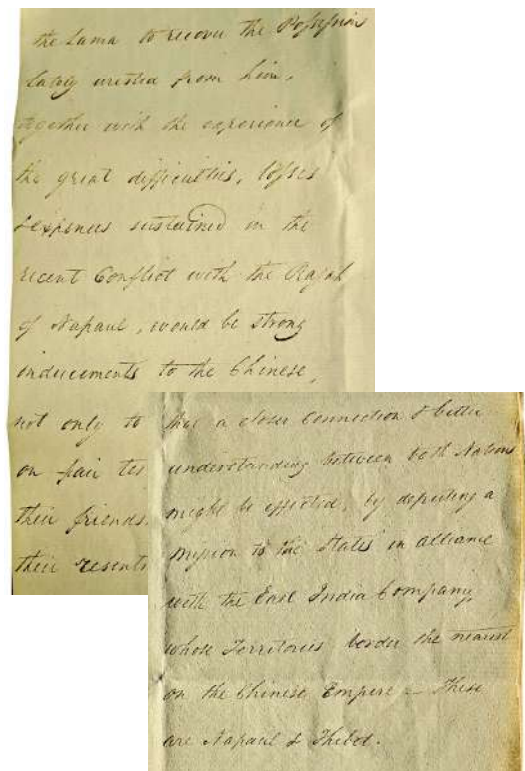 the Lama to recover the Possessions
lately wrested from him,
together with the experience of
the great difficulties, losses
& expenses sustained in the
recent Conflict with the Rajah
of Napaul, would be strong
inducements to the Chinese,
not only to
on fair
their friends
their
that a closer Connection & better
understanding between both Nations
might be effected, by deputing a
Mission to the States in alliance
with the East India Company,
whose Territories border the nearest
on the Chinese Empire — These
are Napaul & Thibet.